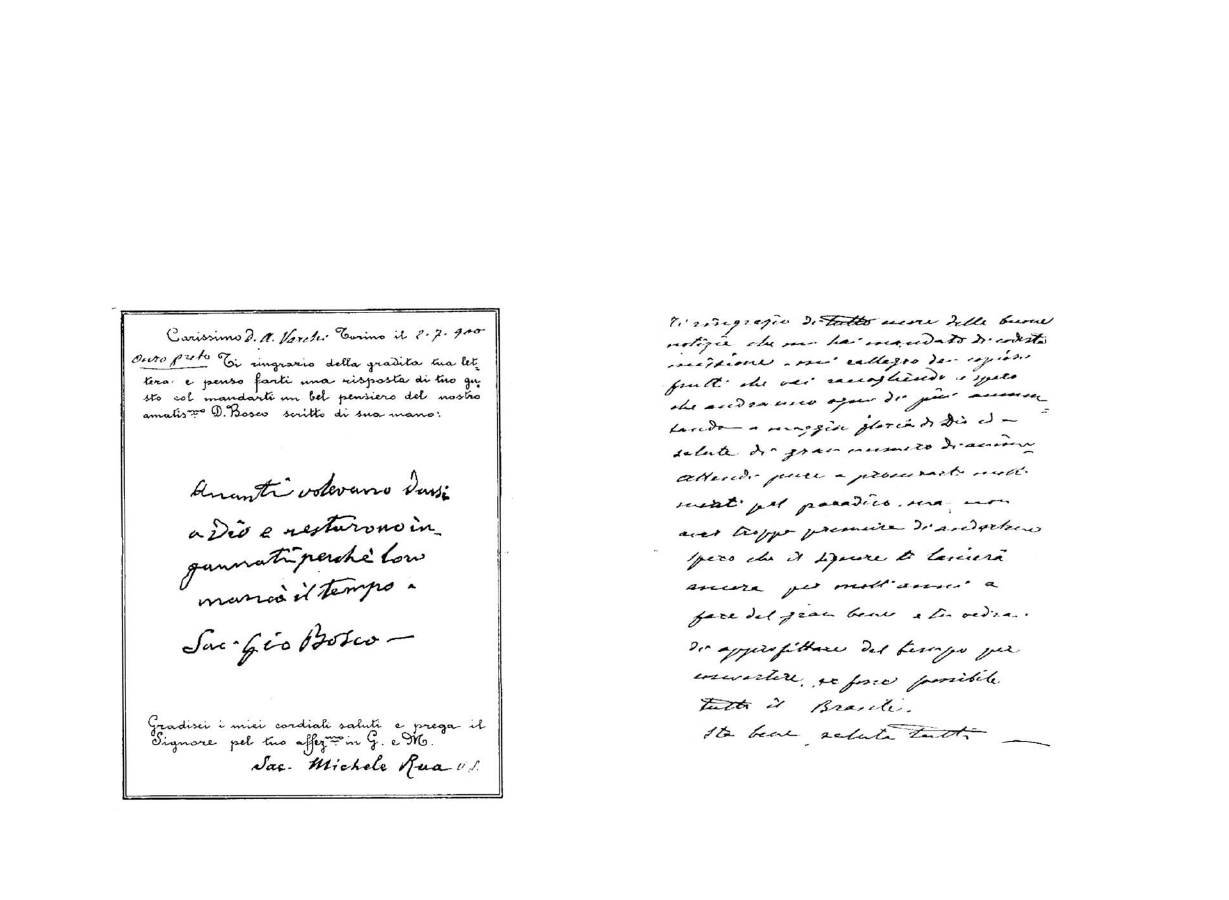 Carissimo D. A. Varchi Torino il 2-7-900
Ouro preto Ti ringrazio della gradita tua let-
tera e penso farti una risposta di tuo gu-
sto col mandarti un bel pensiero del nostro
amatis.mo D. Bosco scritto di sua mano:
Quanti volevano darsi
a Dio e restarono in-
gannati perchè loro
mancò il tempo.
Sac. Gio Bosco
Gradisci i miei cordiali saluti e prega il
Signore pel tuo affez.mo in G. e M.
Sac. Michele Rua
Ti ringrazio di tutto cuore delle buone
notizie che mi hai mandato di codesta
missione. mi rallegro dei copiosi
frutti che vai raccogliendo e spero
che andranno ognor di più aumen
tando a maggior gloria di Dio ed a
salute di gran numero di anime
Attendi pure a procurarti molti
meriti pel paradiso. ma non
aver troppo premura di andartene
spero che il Signore ti lascierà
ancora per molti anni a
fare del gran bene e tu vedrai
di approfittare del tempo per
convertire, se fosse possibile
tutto il Brasile.
Sta bene, saluta tutti